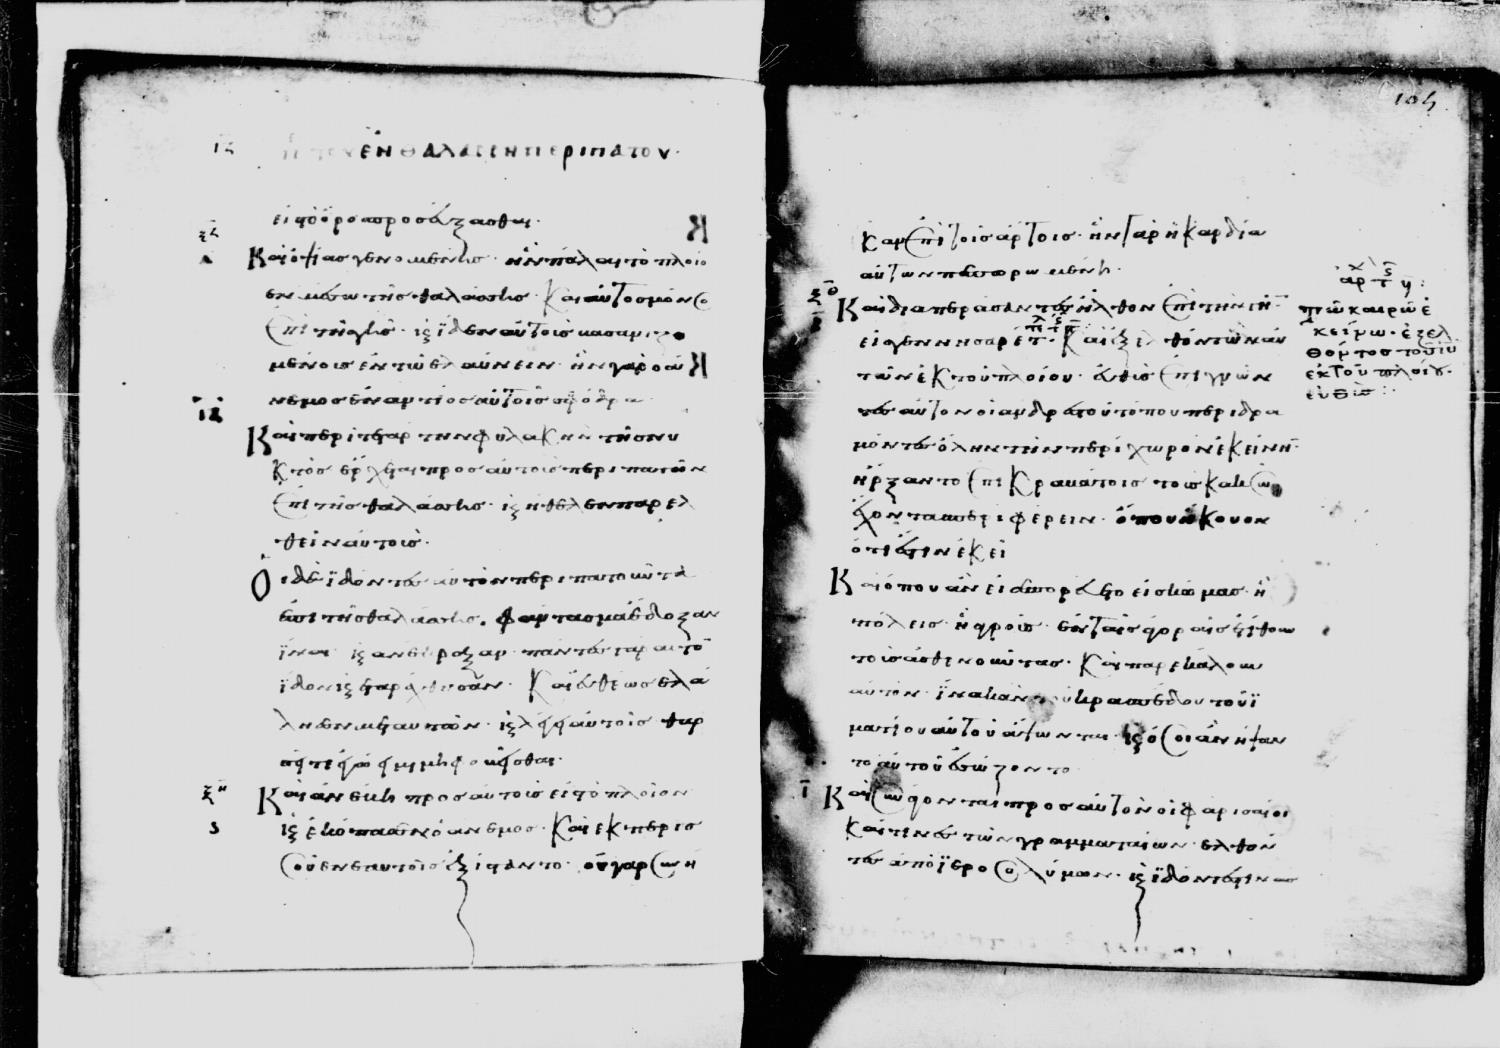 ΙϚ
ΤΟΥ ἐΝ ΘΑΛΑΣΣΗ ΠΕΡΙΠΑΤΟΥ·
εἰς τὸ ὄρος προσεύξασθαι·
ξζ
Καὶ ὀψίας γενομένης· ἦν πάλαι τὸ πλοῖο
ἐν μέσω τῆς θαλάσσης· Καὶ αὐτὸς μόνος
ἐπὶ τῆς γῆς· ϗ ἰδεν αὐτοὺς βασανιζο
μένοις ἐν τῶ ἐλαύνειν· ἦν γὰρ ὁ ἄ
νεμος ἐναντίος αὐτοῖς σφόδρα
Καὶ περὶ τετάρτην φυλακὴν τῆς νυ
κτὸς ἔρχεται προς αὐτοὺς περιπατῶν
ἐπὶ τῆς θαλάσσης· ϗ ἤθελεν παρελ
θεῖν αὐτούς·
Οἱ δὲ ἰδόντες αὐτὸν περιπατοῦντα
ἐπὶ τῆς θαλάσσης. φάντασμα ἔδοξαν
εἶναι ϗ ἀνέκραξαν· πάντες γὰρ αὐτὸ
ἴδον ϗ ἐταράχθησαν· Καὶ εὐθέως ἐλά
λησεν μετ αὐτῶν· ϗ λέγει αὐτοῖς θαρ
σεῖτε ἐγώ εἰμι μὴ φοβεῖσθαι·
ξη
Καὶ ἀνέβη πρὸς αὐτοὺς εἰς τὸ πλοῖον
ϗ ἐκόπασεν ὁ ἄνεμος· Καὶ ἐκ περισ
σοῦ ἐν ἑαυτοῖς ἐξίσταντο· οὐ γὰρ συνῆ
105
καν ἐπὶ τοῖς ἄρτοις· ἦν γὰρ ἡ καρδία
αὐτῶν πεπωρωμένη·
ξθ
Καὶ διαπεράσαντες ἦλθον ἐπὶ τὴν γῆν
εἰς γεννησαρέτ· Καὶ ἐξελθόντων αὐ
τῶν ἐκ τοῦ πλοίου· εὐθὺς ἐπιγνόν
τες αὐτὸν οἱ ἄνδρες τοῦ τόπου περιδρα
μόντες ὅλην τὴν περίχωρον ἐκείνην
ἤρξαντο ἐπὶ κραβάτοις τοὺς κακῶς
ἔχοντας περιφέρειν· ὅπου ἤκουον
ὅτι ἐστιν ἐκεῖ
Καὶ ὅπου ἂν εἰσεπορεύετο εἰς κώμας· ἢ
πόλεις· ἢ ἀγροὺς· ἐν ταῖς ἀγοραῖς ἐτίθουν
τοὺς ἀσθενοῦντας· Καὶ παρεκάλουν
αὐτὸν· ἵνα κἂν τοῦ κρασπέδου τοῦ ἱ
ματίου αὐτοῦ ἅψωνται· ϗ ὅσοι ἂν ἥψαν
το αὐτοῦ ἐσώζοντο
ο
Καὶ συνάγονται πρὸς αὐτὸν οἱ φαρισαῖοι
καὶ τινὲς τῶν γραμματαίων· ἐλθόν
τες ἀπὸ ἱεροσολύμων· ϗ ἰδόντες τινας
αρχ
τῶ καιρῶ ἐ
κείνω· ἐξελ
θόντος τοῦ ιυ
ἐκ τοῦ πλοίου·
εὐθὺς